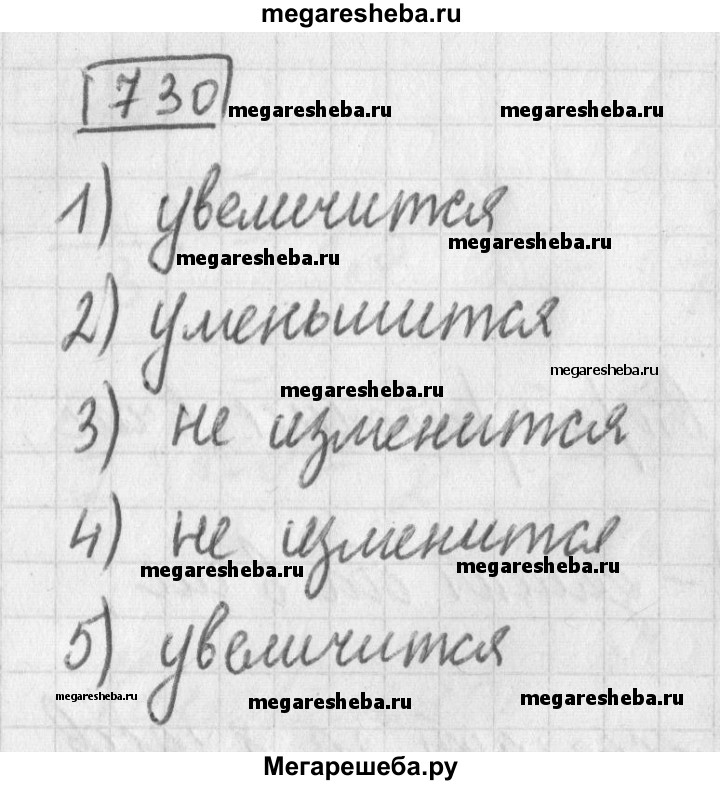 megaresheba.ru
730
megaresheba.ru megaresheba.ru
1) увеличится
megaresheba.ru
megaresheba.ru
2) уменьшится
megaresheba.ru
megaresheba.ru
3) не изменится
4) не изменится
megaresheba.ru
megaresheba.ru
5) увеличится
megaresheba.ru
megaresheba.ru
megaresheba.ru
Мегарешеба.ру